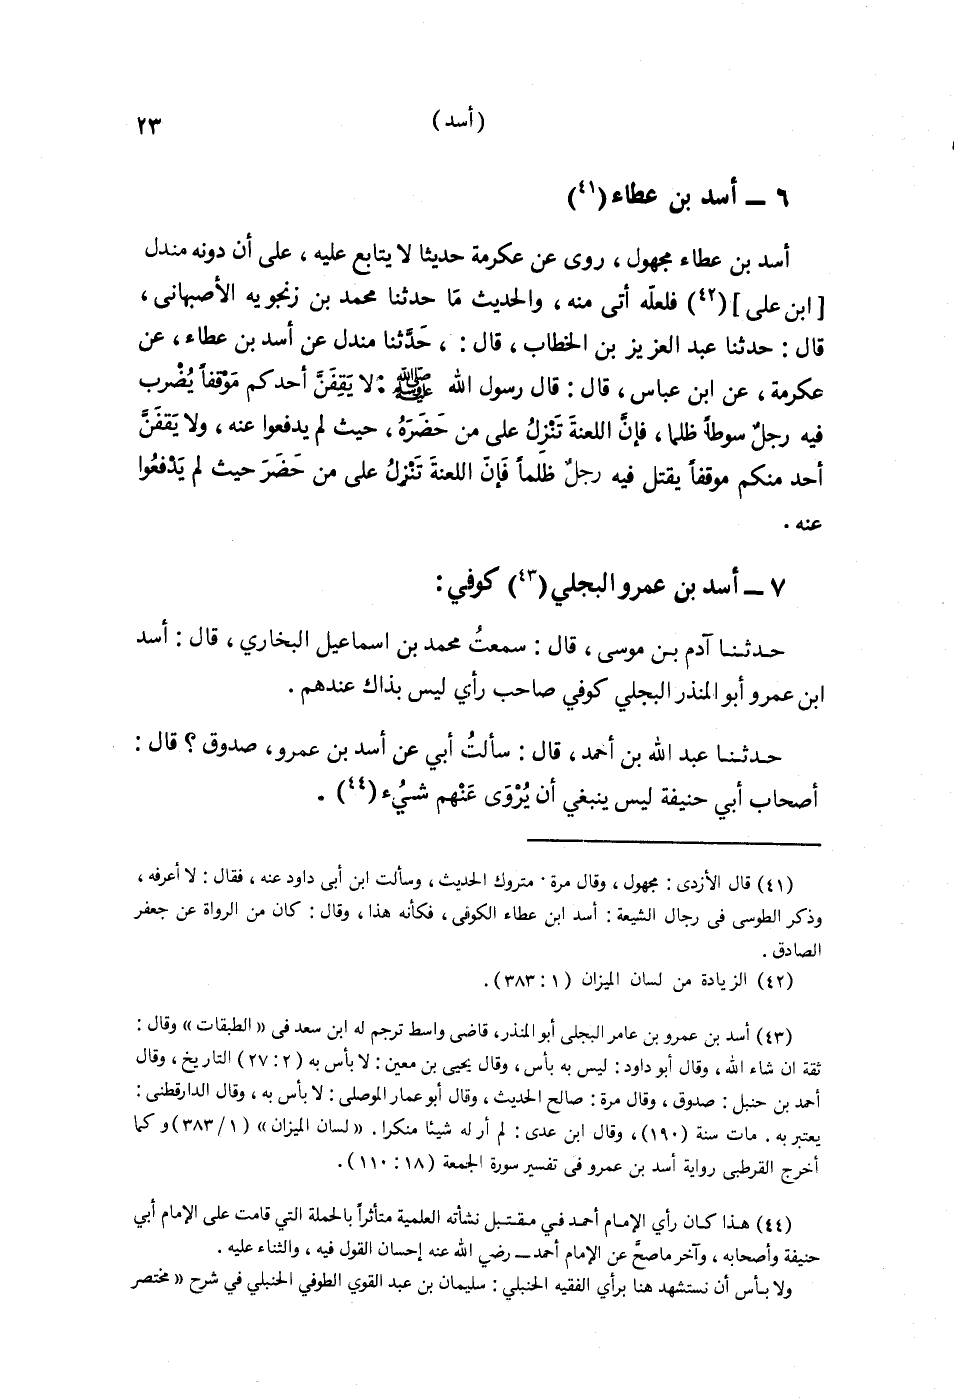 (أسد) ٢٣
٦ ــ أسد بن عطاء (٤١)
أسد بن عطاء مجهول، روى عن عكرمة حديثا لا يتابع عليه، على أن دونه مندل
[ابن على] (٤٢) فلعلّه أتى منه، والحديث مّا حدثنا محمد بن زنجويه الأصبهانى،
قال: حدثنا عبد العزيز بن الخطاب، قال: ، حَدَّثنا مندل عن أسد بن عطاء، عن
عكرمة، عن ابن عباس، قال: قال رسول الله ﷺ: لا يَقِفَنَّ أحدكم مَوْقفاً يُضْرب
فيه رجلٌ سوطاً ظلما، فإنَّ اللعنةَ تَنْزِلُ على من حَضَرَهُ، حيث لم يدفعوا عنه، ولا يَقفَنَّ
أحد منكم موقفاً يقتل فيه رجلٌ ظلماً فَإنّ اللعنةَ تَنْزِلُ على من حَضَرَ حيث لم يَدْفعُوا
عنه.
٧ ــ أسد بن عمرو البجلي (٤٣) كوفي:
حدثنا آدم بن موسى، قال: سمعتُ محمد بن اسماعيل البخاري، قال: أسد
ابن عمرو أبو المنذر البجلي كوفي صاحب رأي ليس بذاك عندهم.
حدثنا عبد الله بن أحمد، قال: سألتُ أبي عن أسد بن عمرو، صدوق؟ قال:
أصحاب أبي حنيفة ليس ينبغي أن يُرْوَى عَنْهم شيُء (٤٤).
(٤١) قال الأزدى: مجهول، وقال مرة. متروك الحديث، وسألت ابن أبى داود عنه، فقال: لا أعرفه،
وذكر الطوسى فى رجال الشيعة: أسد ابن عطاء الكوفى، فكأنه هذا، وقال: كان من الرواة عن جعفر
الصادق.
(٤٢) الزيادة من لسان الميزان (١: ٣٨٣).
(٤٣) أسد بن عمرو بن عامر البجلى أبو المنذر، قاضى واسط ترجم له ابن سعد فى «الطبقات» وقال:
ثقة ان شاء الله، وقال أبو داود: ليس به بأس، وقال يحيى بن معين: لا بأس به (٢: ٢٧) التاريخ، وقال
أحمد بن حنبل: صدوق، وقال مرة: صالح الحديث، وقال أبو عمار الموصلى: لا بأس به، وقال الدارقطنى:
يعتبر به. مات سنة (١٩٠)، وقال ابن عدى: لم أر له شيئا منكرا. «لسان الميزان» (١/ ٣٨٣) و كما
أخرج القرطبى رواية أسد بن عمرو فى تفسير سورة الجمعة (١٨: ١١٠).
(٤٤) هذا كان رأي الإمام أحمد في مقتبل نشأته العلمية متأثراً بالحملة التي قامت على الإمام أبي
حنيفة وأصحابه، وآخر ماصحَّ عن الإمام أحمد ــ رضي الله عنه إحسان القول فيه، والثناء عليه.
ولا بأس أن نستشهد هنا برأي الفقيه الحنبلي: سليمان بن عبد القوي الطوفي الحنبلي في شرح «مختصر